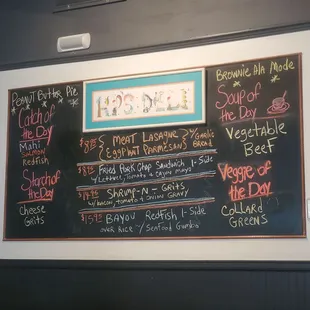 Peanut Butter Pie
Catch of
the Day
Mahi
Salmon
Redfish
Starch of
the Day
Cheese
Grits
KP'S DELI
Meat Lasagne w/ Garlic
Eggplant Parmesan Bread
Fried Pork Chop Sandwich 1-Side
w/ Lettuce, Tomato & Cajun Mayo
Shrimp-N-Grits
w/ Bacon, Tomato & Onion Gravy
$15.95 Bayou Redfish 1-Side
over Rice w/ Seafood Gumbo
Brownie Ala Mode
Soup of
the Day
Vegetable
Beef
Veggie of
the Day
Collard
Greens